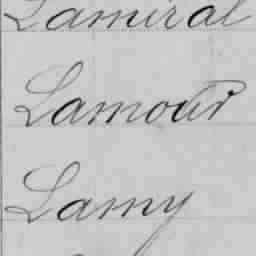 Lamiral
Lamour
Lamy